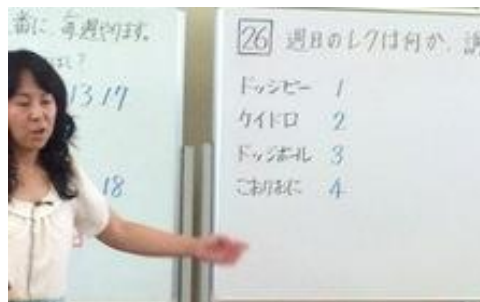 番に、毎週やります。
13 17
18
26 週目のレクは何か、
ドッジビー 1
ケイドロ 2
ドッジボール 3
こおりおに 4